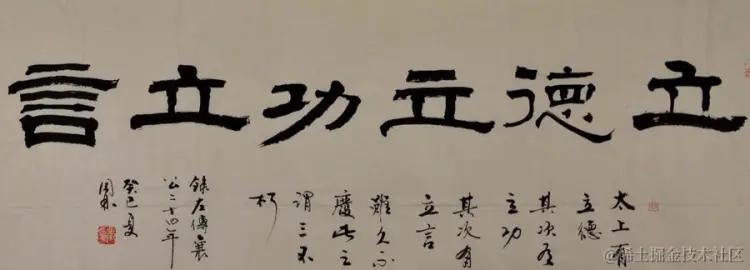 立德立功立言
太上有
立德
其次有
立功
其次有
立言
雖久不
廢此之
謂三不
朽
錄左傳襄
公二十四年
癸巳夏
@稀土掘金技术社区